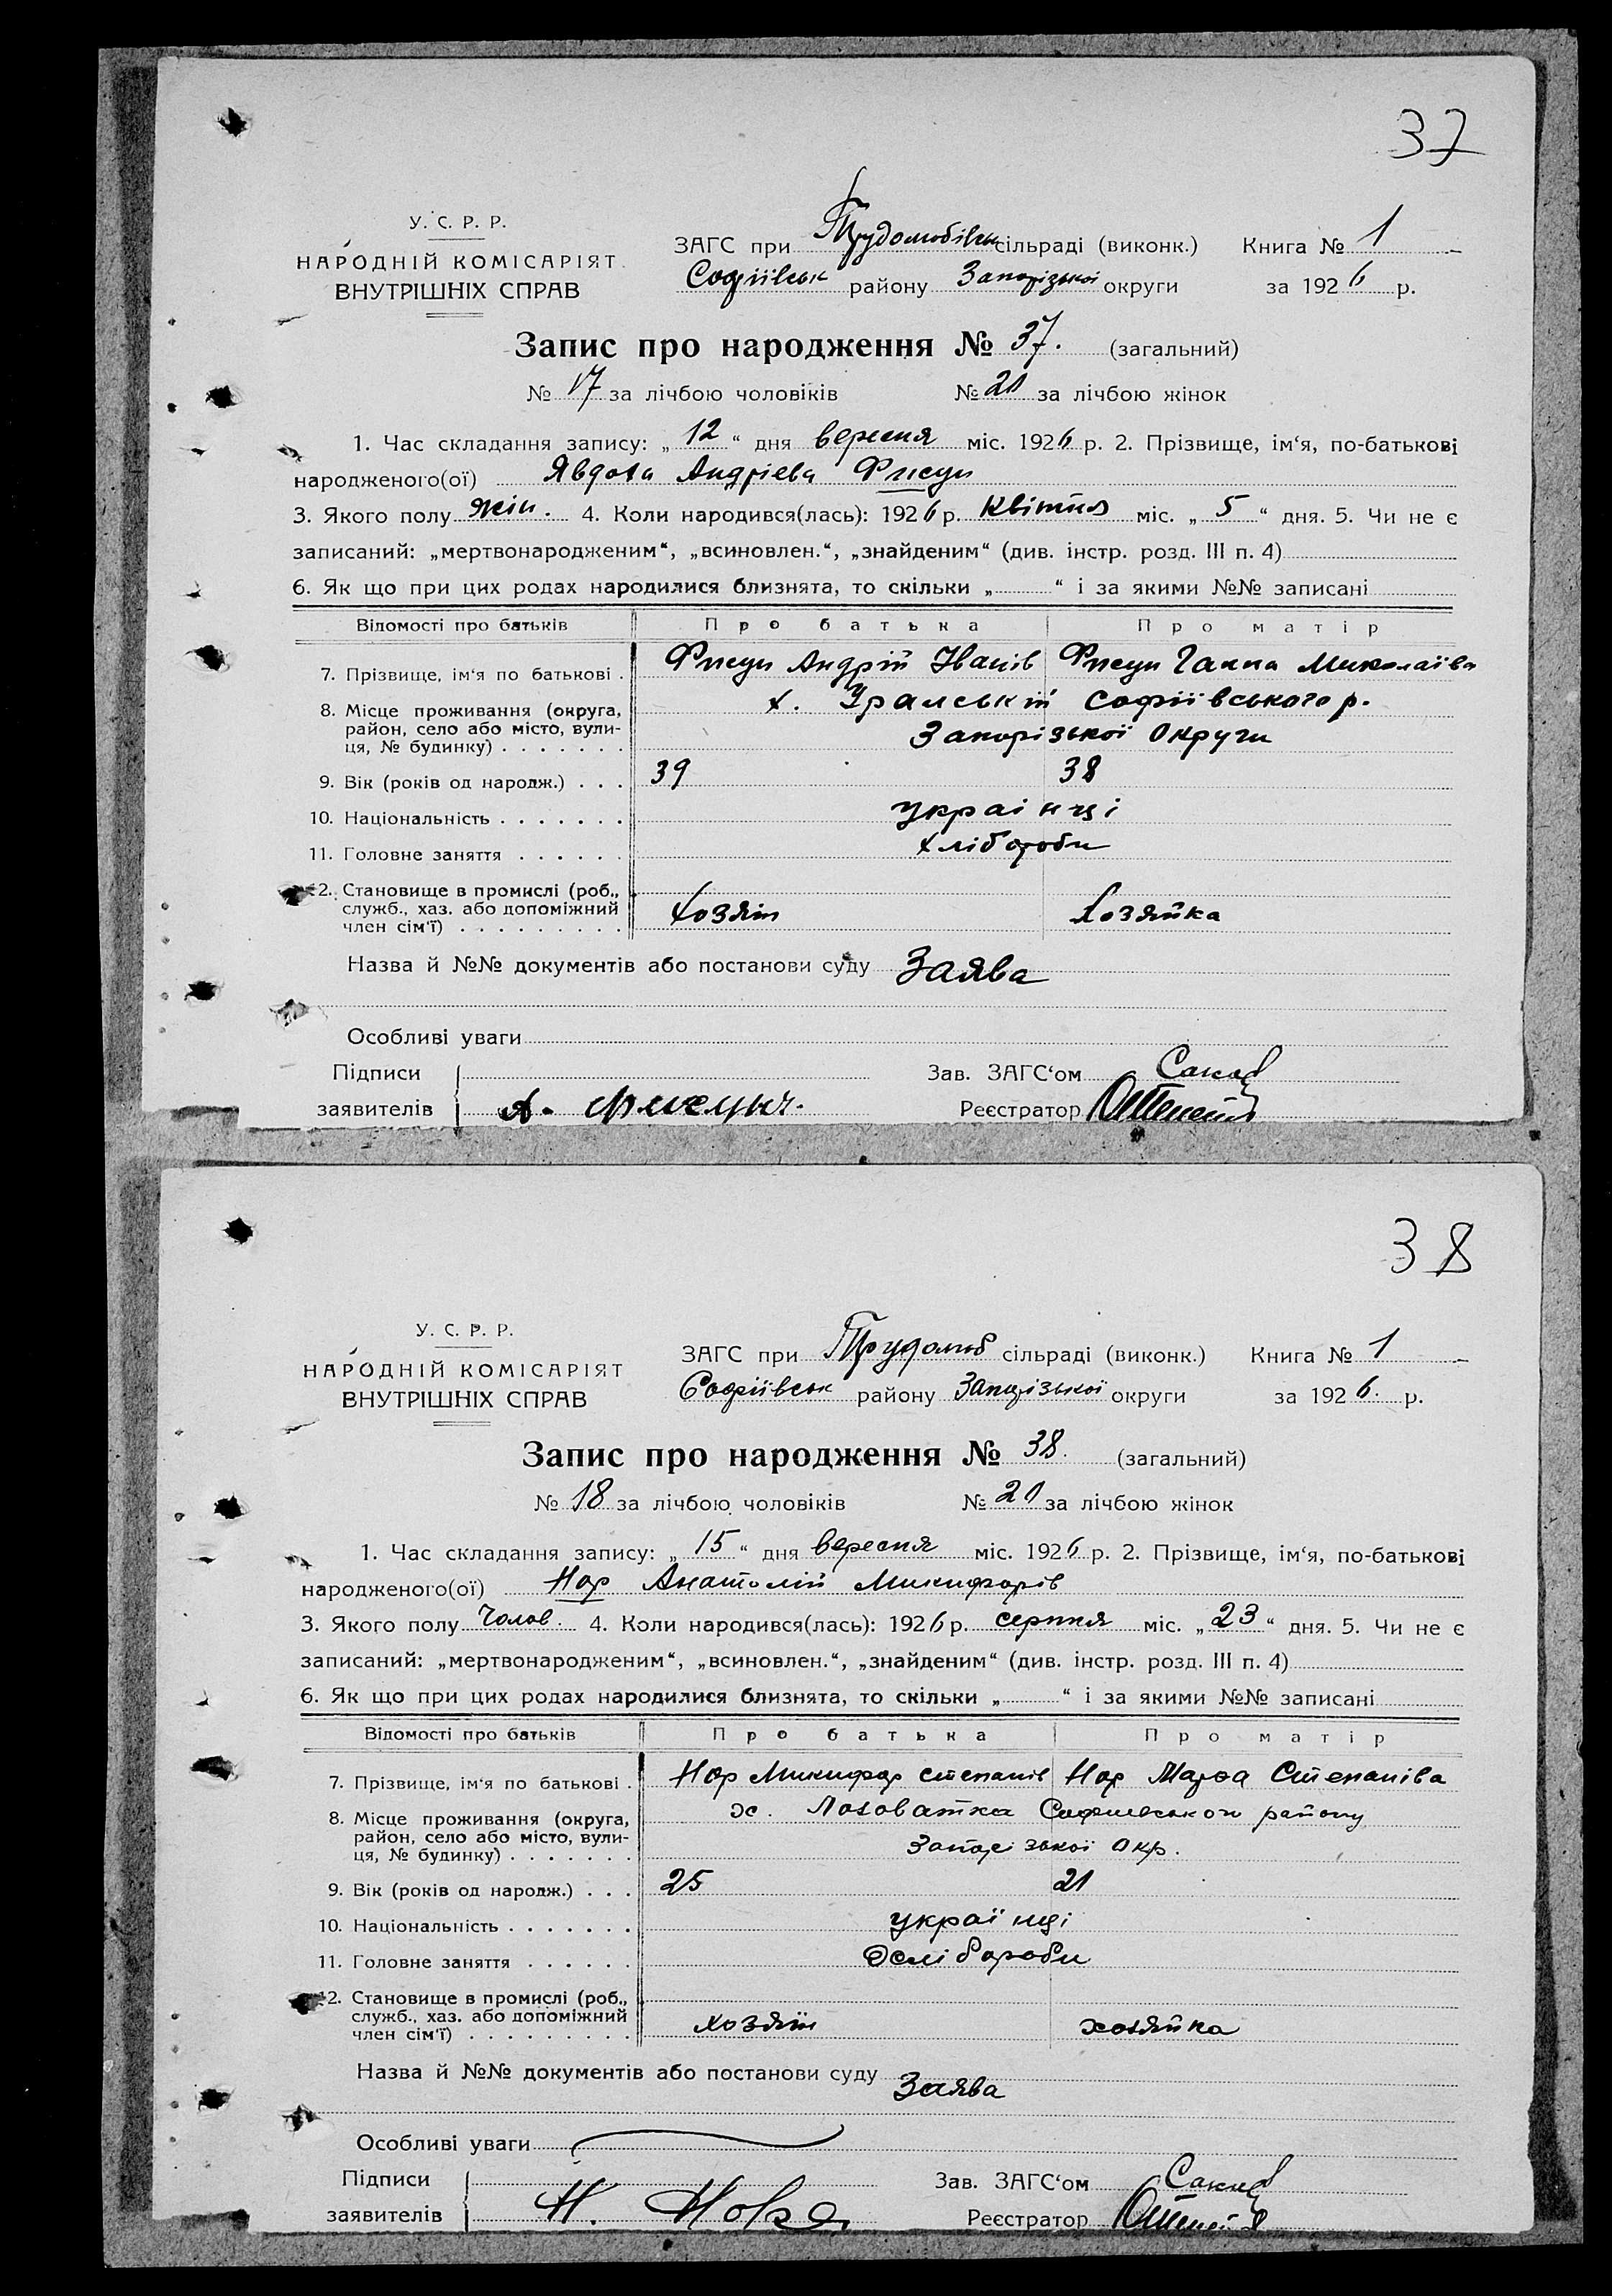 37
У. С. Р. Р.
НАРОДНІЙ КОМІСАРІЯТ
ВНУТРІШНІХ СПРАВ
ЗАГС при Трудолюбівськ сільраді (виконк.) Книга № 1
Софіївськ району Запорізької округи за 1926 р.
Запис про народження № 37. (загальний)
№ 17 за лічбою чоловіків № 20 за лічбою жінок
1. Час складання запису: „ 12 “ дня вересня міс. 1926 р. 2. Прізвище, ім‘я, по-батькові
народженого(ої) Явдоха Андріева Фисун
3. Якого полу жін. 4. Коли народився(лась): 1926 р. квітня міс. „ 5 “ дня. 5. Чи не є
записаний: „мертвонародженим“, „всиновлен.“, „знайденим“ (див. інстр. розд. III п. 4)
6. Як що при цих родах народилися близнята, то скільки „ “ і за якими №№ записані
Відомості про батьків Про батька Про матір
7. Прізвище, ім‘я по батькові . Фисун Андрій Іванів Фисун Ганна Миколаївн
8. Місце проживання (округа, х. Уральський Софіівського р.
район, село або місто, вули-
ця, № будинку) . . . . . . . Запорізької Округи
9. Вік (років од народж.) . . . 39 38
10. Національність . . . . . . . украінці
11. Головне заняття . . . . . . хлібороби
12. Становище в промислі (роб.,
служб., хаз. або допоміжний хозяїн хозяйка
член сім‘ї) . . . . . . . . .
Назва й №№ документів або постанови суду Заява
Особливі уваги
Підписи Зав. ЗАГС‘ом
заявителів А. Фисун Реєстратор
38
У. С. Р. Р.
НАРОДНІЙ КОМІСАРІЯТ
ВНУТРІШНІХ СПРАВ
ЗАГС при Трудолюб сільраді (виконк.) Книга № 1
Софіївськ району Запорізької округи за 1926. р.
Запис про народження № 38. (загальний)
№ 18 за лічбою чоловіків № 20 за лічбою жінок
1. Час складання запису: „ 15 “ дня вересня міс. 1926 р. 2. Прізвище, ім‘я, по-батькові
народженого(ої) Нор Анатолій Микифорів
3. Якого полу Чолов. 4. Коли народився(лась): 1926 р. серпня міс. „ 23 “ дня. 5. Чи не є
записаний: „мертвонародженим“, „всиновлен.“, „знайденим“ (див. інстр. розд. III п. 4)
6. Як що при цих родах народилися близнята, то скільки „ “ і за якими №№ записані
Відомості про батьків Про батька Про матір
7. Прізвище, ім‘я по батькові . Нор Микифор Степанів Нор Марфа Степаніва
8. Місце проживання (округа, х. Лозоватка Софиевського району
район, село або місто, вули-
ця, № будинку) . . . . . . . Запорізької Окр.
9. Вік (років од народж.) . . . 25 21
10. Національність . . . . . . . українці
11. Головне заняття . . . . . . хлібороби
12. Становище в промислі (роб.,
служб., хаз. або допоміжний хозяїн хозяйка
член сім‘ї) . . . . . . . . .
Назва й №№ документів або постанови суду Заява
Особливі уваги
Підписи Зав. ЗАГС‘ом
заявителів Н. Реєстратор